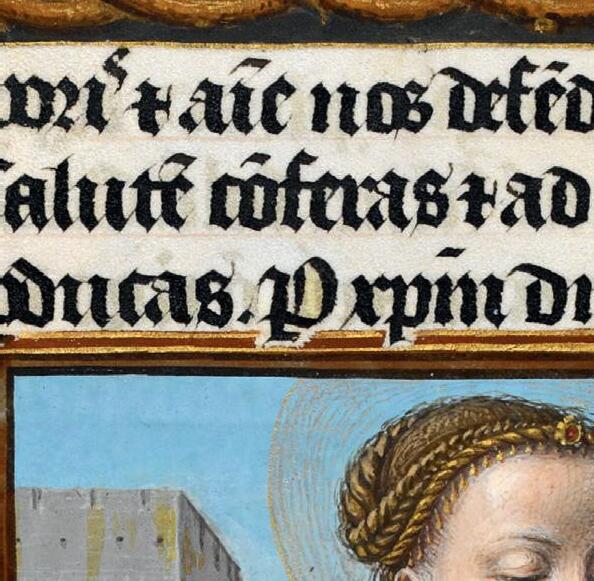 ⁊ aīe nos defēd
salutē cōferas ⁊ ad
ducas. P xpm̄ dn